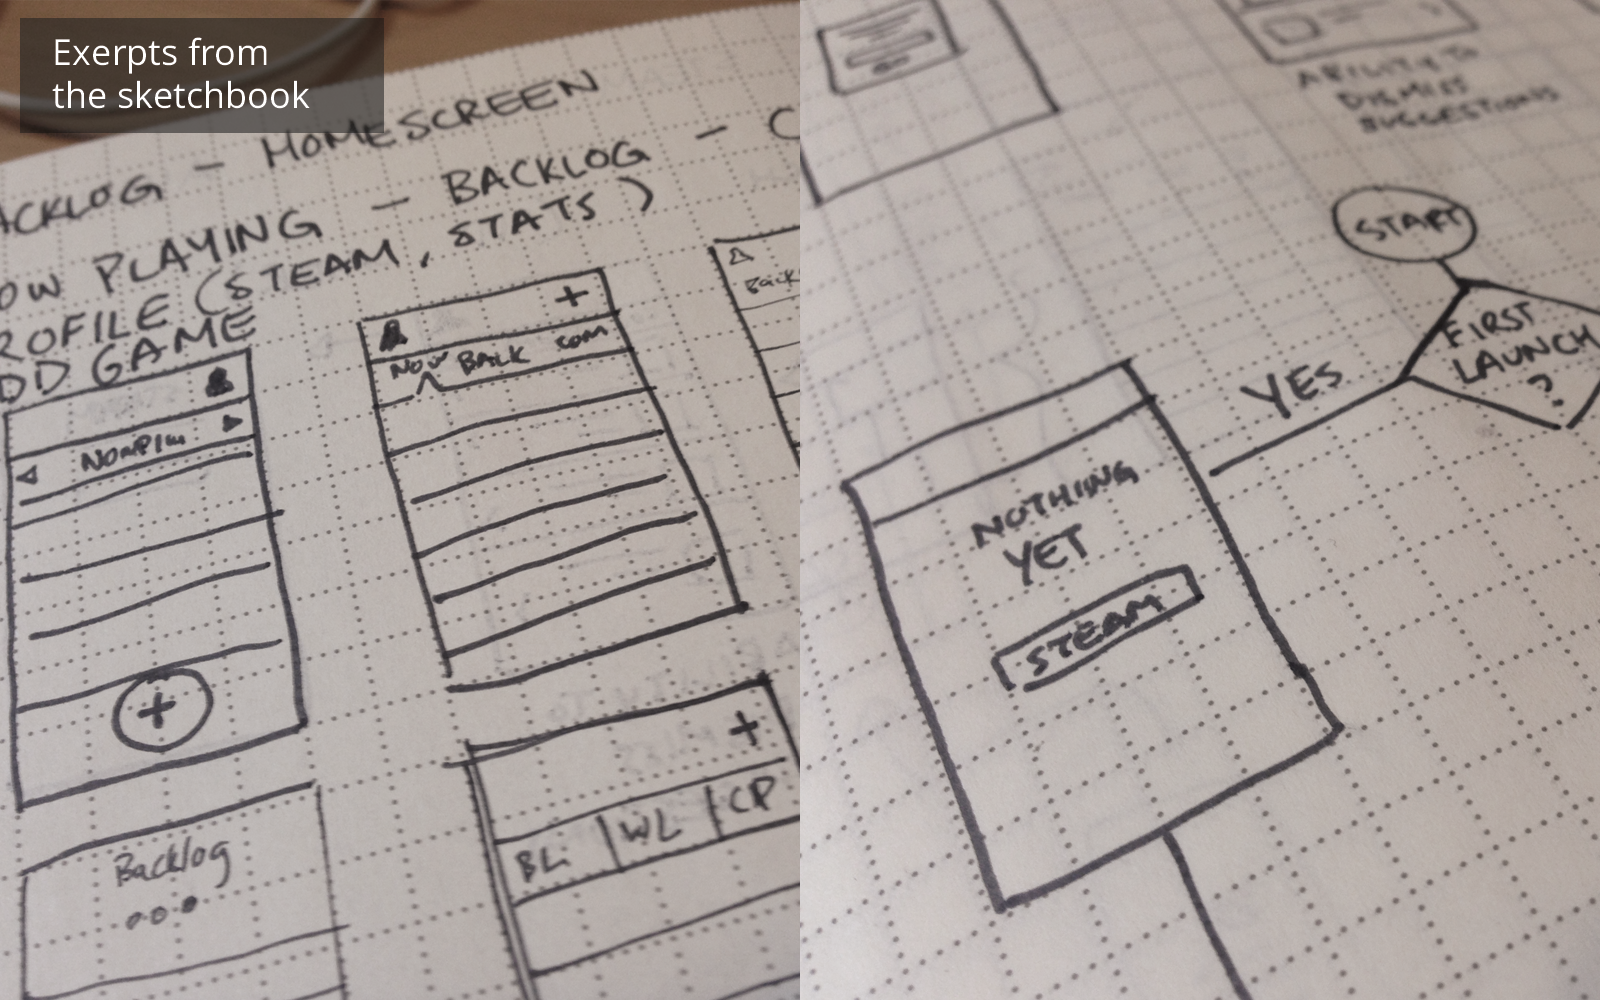 Exerpts from
the sketchbook
ACKLOG - HOMESCREEN
OW PLAYING - BACKLOG - C
ROFILE (STEAM, STATS)
DD GAME
NOW BALK COM
Back
BL WL CP
Backlog
ABILITY TO
DISMISS
SUGGESTIONS
START
FIRST
LAUNCH
?
YES
NOTHING
YET
STEAM